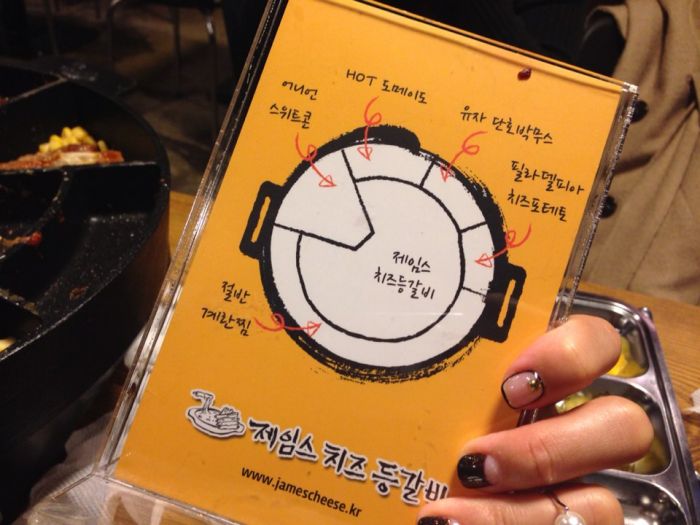 어니언
스위트콘
HOT 도메이도
유자 단호박무스
필라델피아
치즈포테토
제임스
치즈등갈비
절반
계란찜
제임스 치즈 등갈비
www.jamescheese.kr